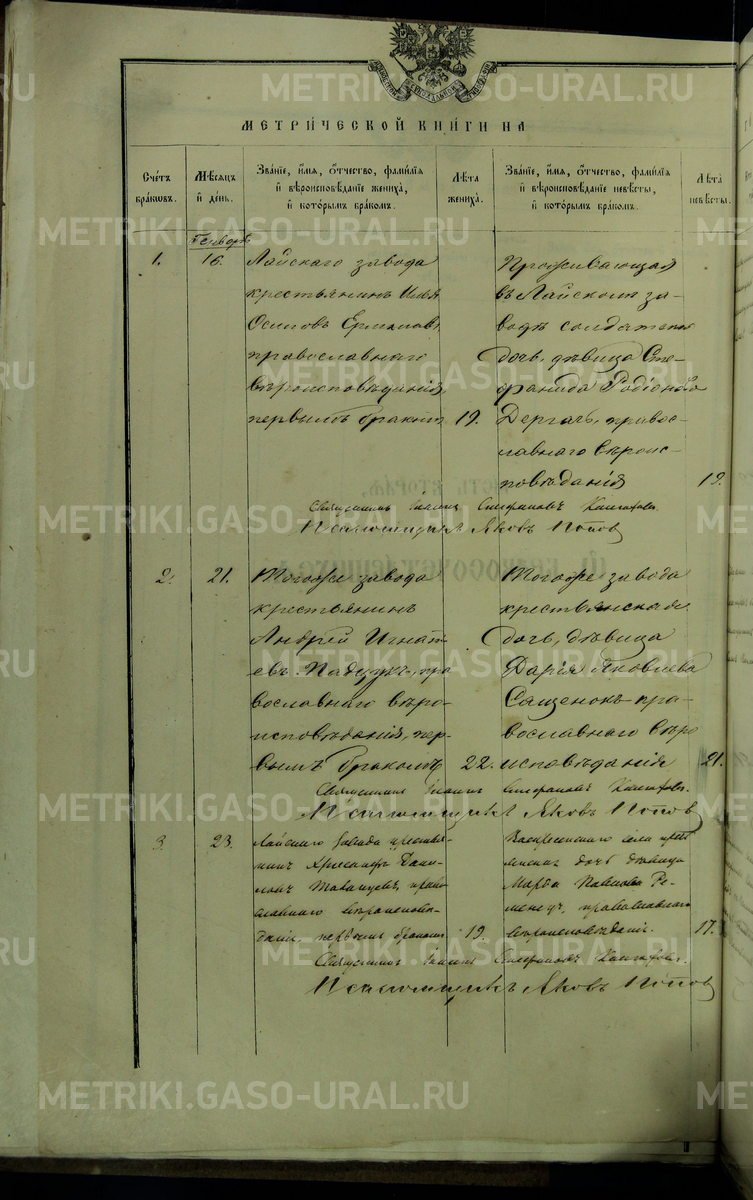 МЕТРИЧЕСКОЙ КНИГИ НА
Счетъ браковъ.
Мѣсяцъ и день.
Званіе, имя, отчество, фамилія и вѣроисповѣданіе жениха, и которымъ бракомъ.
Лѣта жениха.
Званіе, имя, отчество, фамилія и вѣроисповѣданіе невѣсты, и которымъ бракомъ.
Лѣта невѣсты.
Генварь
1.
16.
Лайскаго завода
крестьянинъ Илья
Осиповъ
православнаго
вѣроисповѣданія,
первымъ бракомъ
19.
Проживающая
въ Лайскомъ за-
водѣ солдатская
дочь, дѣвица Сте-
фанида Родіонова
Дергачь, правос-
лавнаго вѣроис-
повѣданія
19.
Священникъ Іоаннъ
Псаломщикъ Яковъ Поповъ
2.
21.
Тогоже завода
крестьянинъ
Андрей Игнать-
евъ Падукъ, пра
вославнаго вѣро-
исповѣданія, пер-
вымъ бракомъ
22.
Тогоже завода
крестьянская
дочь, дѣвица
Дарія Яковлева
Сащенокъ пра-
вославнаго вѣро
исповѣданія
21.
Священникъ Іоаннъ
Псаломщикъ Яковъ Поповъ
3.
23.
Лайскаго завода крестья-
нинъ Дани-
ловъ право
славнаго вѣроисповѣ-
данія, первымъ бракомъ
19.
Воскресенскаго села крест
янская дочь дѣвица
Марѳа Павлова Ре-
менецъ, православнаго
вѣроисповѣданія.
17.
Священникъ Іоаннъ
Псаломщикъ Яковъ Поповъ
METRIKI.GASO-URAL.RU